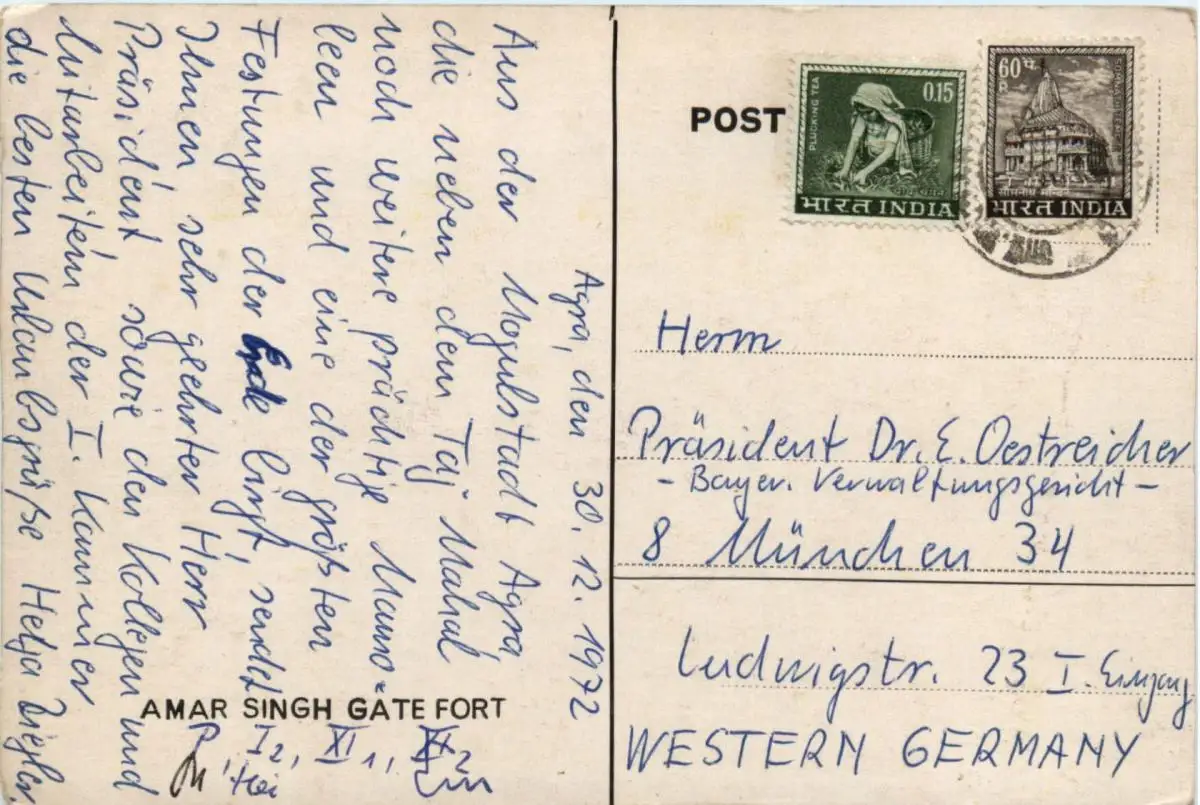 Agra, den 30. 12. 1972
Aus der Mogulstadt Agra,
die neben dem Taj Mahal
noch weitere prächtige Mauso-
leen und eine der größten
Festungen der Erde birgt, sendet
Ihnen, sehr geehrter Herr
Präsident, sowie den Kollegen und
Mitarbeitern der I. Kammer
die besten Urlaubsgrüße Helja Ziegler.
AMAR SINGH GATE FORT
I 2, XI 1,
POST
PLUCKING TEA
0.15
भारत INDIA
60 प
P
SOMNATH TEMPLE
सोमनाथ मन्दिर
भारत INDIA
Herrn
Präsident Dr. E. Oestreicher
- Bayer. Verwaltungsgericht -
8 München 34
Ludwigstr. 23 I. Eingang
WESTERN GERMANY